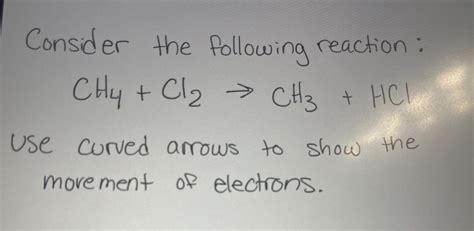 Consider the following reaction:
CH4 + Cl2 → CH3 + HCl
Use curved arrows to show the
movement of electrons.